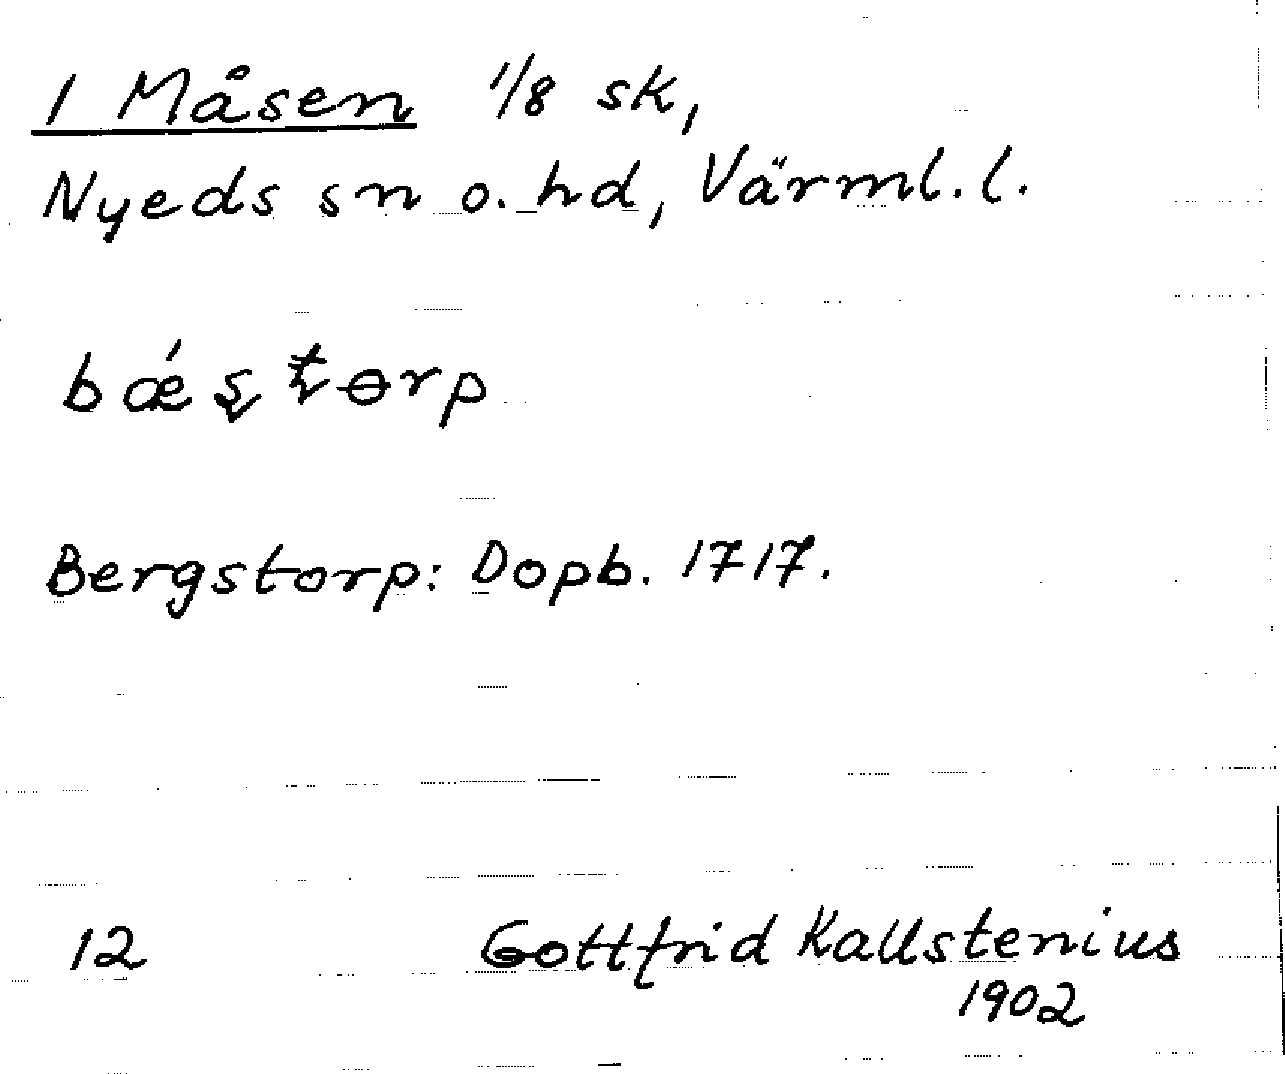 1 Måsen 1/8 sk,
Nyeds sn o. hd, Värml. l.
bǽʂʈɵrp
Bergstorp: Dopb. 1717.
12 Gottfrid Kallstenius
1902